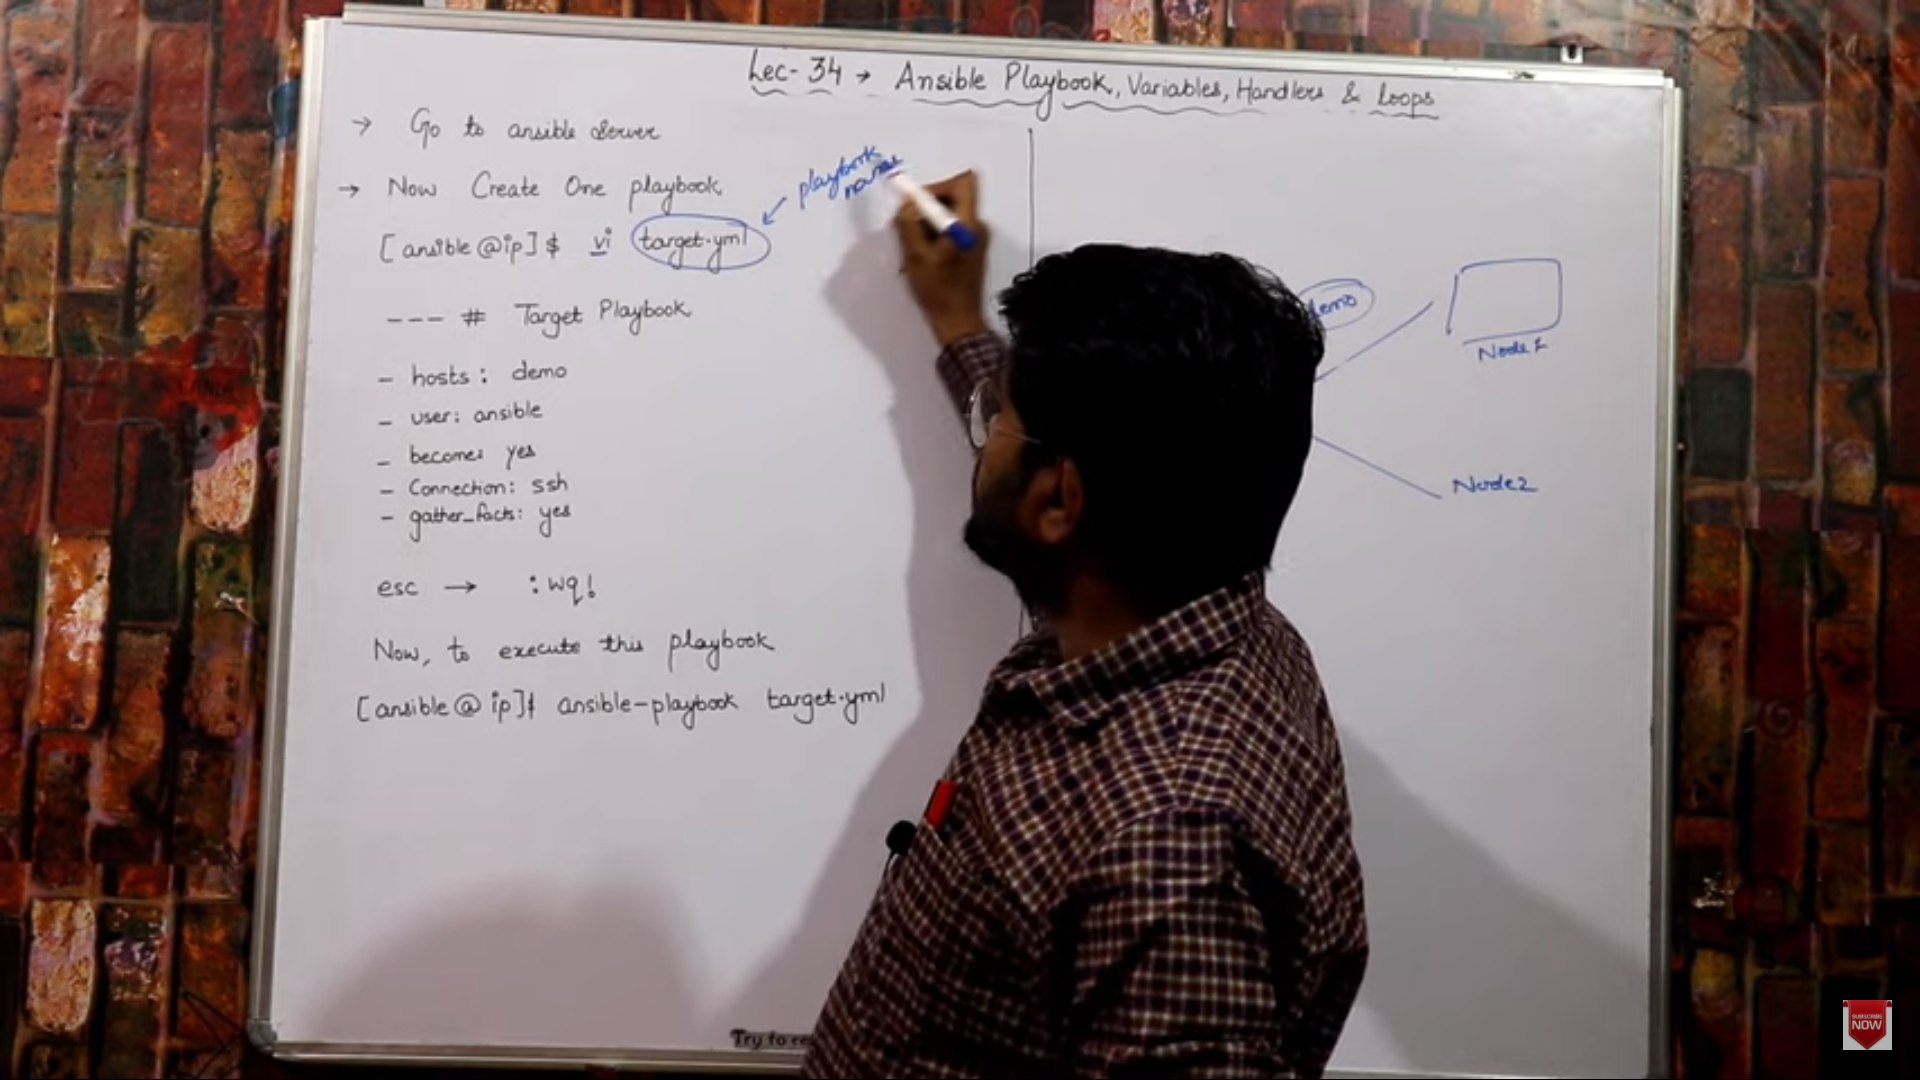 Lec- 34 → Ansible Playbook, Variables, Handlers & Loops
→ Go to ansible server
→ Now Create One playbook
playbook
name
[ansible@ip]$ vi target.yml
--- # Target Playbook
- hosts: demo
- user: ansible
- become: yes
- Connection: ssh
- gather_facts: yes
esc → :wq!
Now, to execute this playbook
[ansible@ip]$ ansible-playbook target.yml
demo
Node 1
Node2
Try to
SUBSCRIBE
NOW